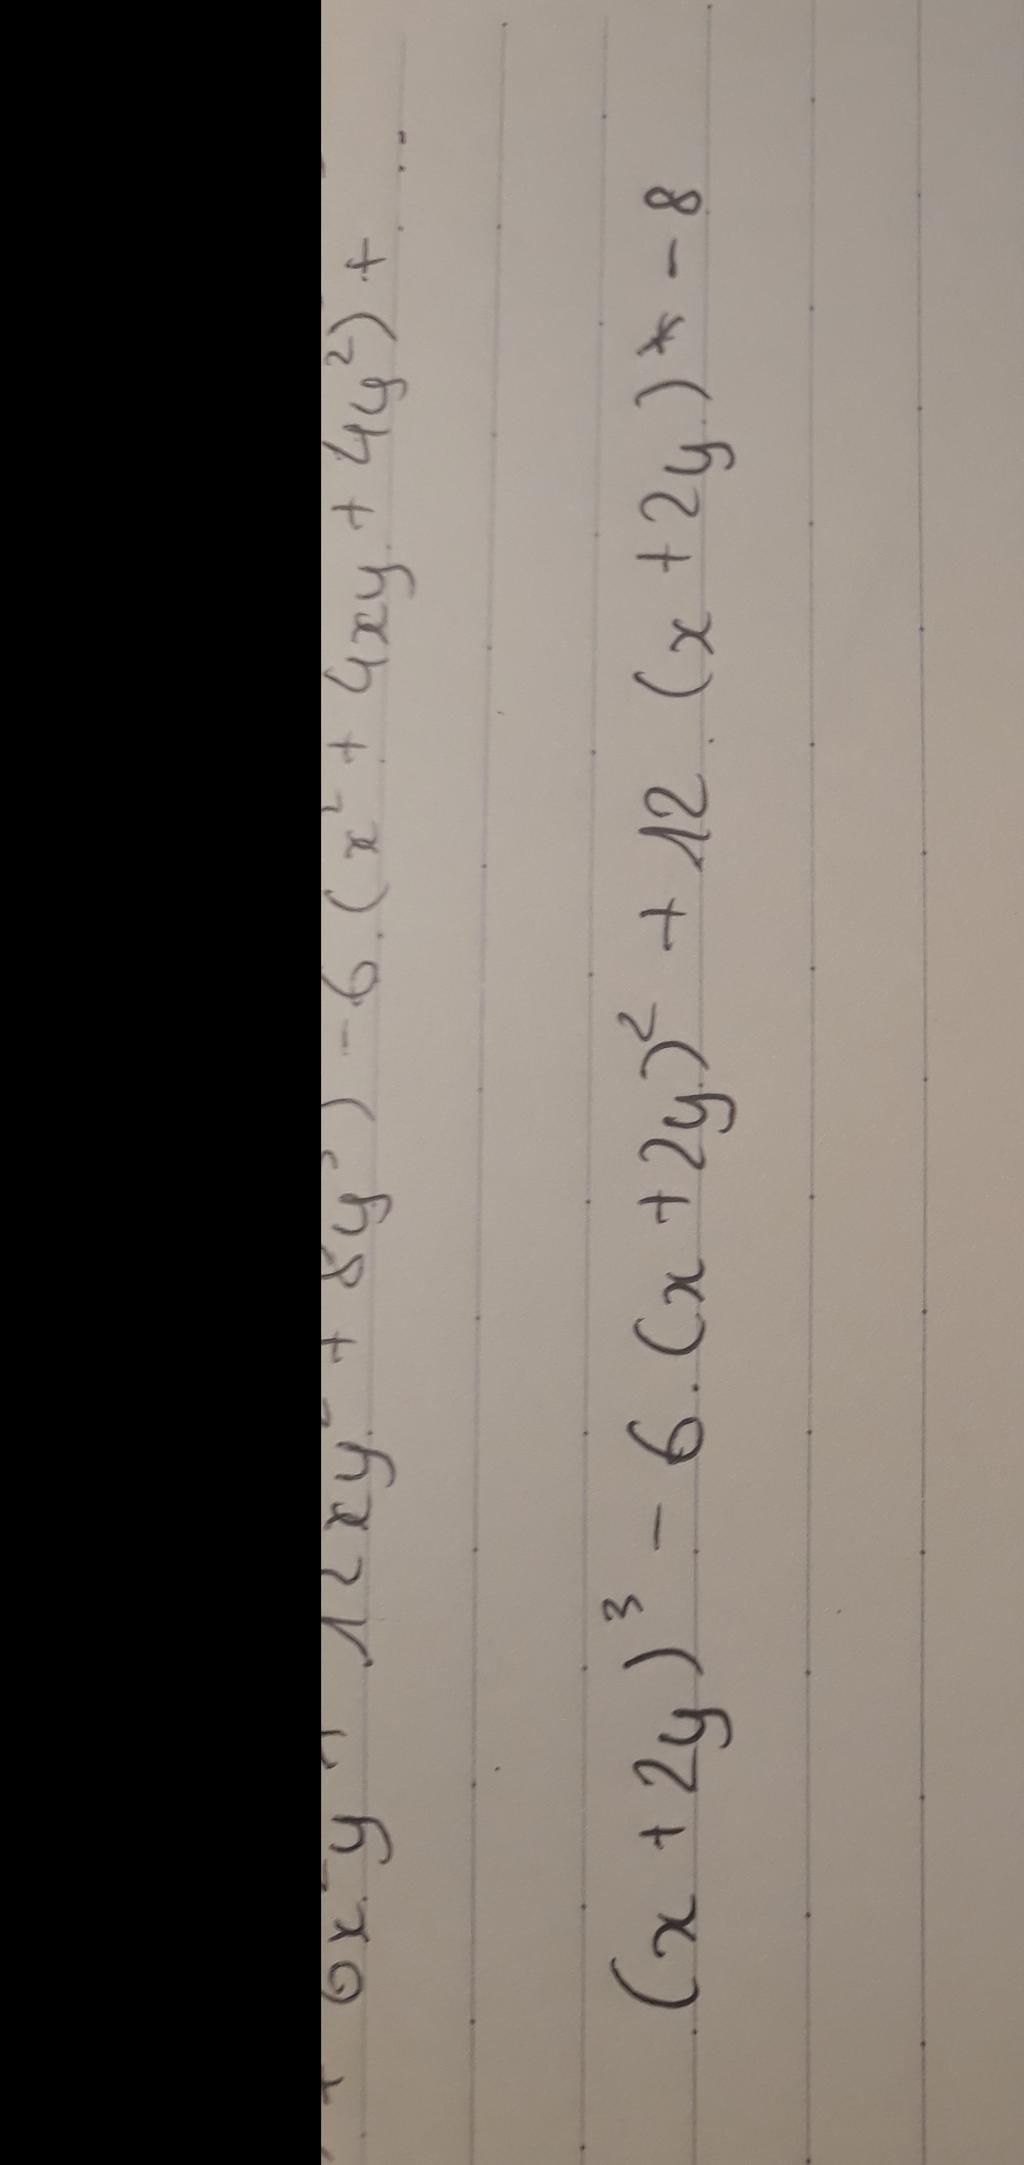 + 6x²y + 12xy² + 8y³) - 6.(x² + 4xy + 4y²) +
(x + 2y)³ - 6.(x + 2y)² + 12.(x + 2y) - 8